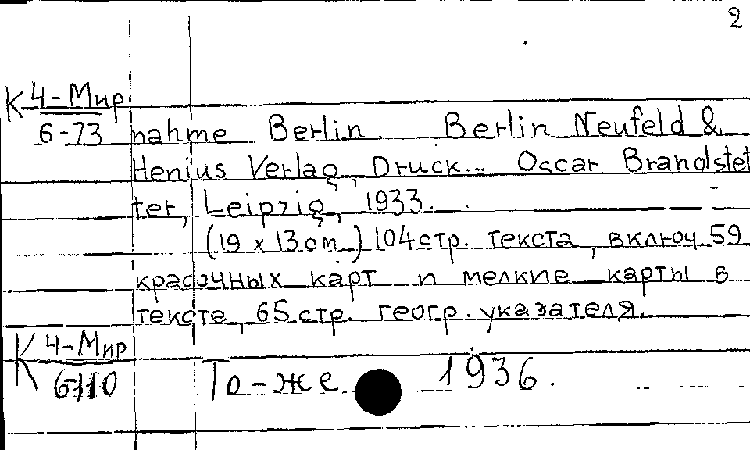 2
К 4-Мир
6-73 nahme Berlin Berlin Neufeld &
Henius Verlag, Druck... Oscar Brandstet
ter, Leipzig, 1933.
(19 x 13 cm.) 104 стр. текста, включ. 59
красочных карт и мелкие карты в
тексте, 65 стр. геогр. указателя.
К 4-Мир
То-же 1936.